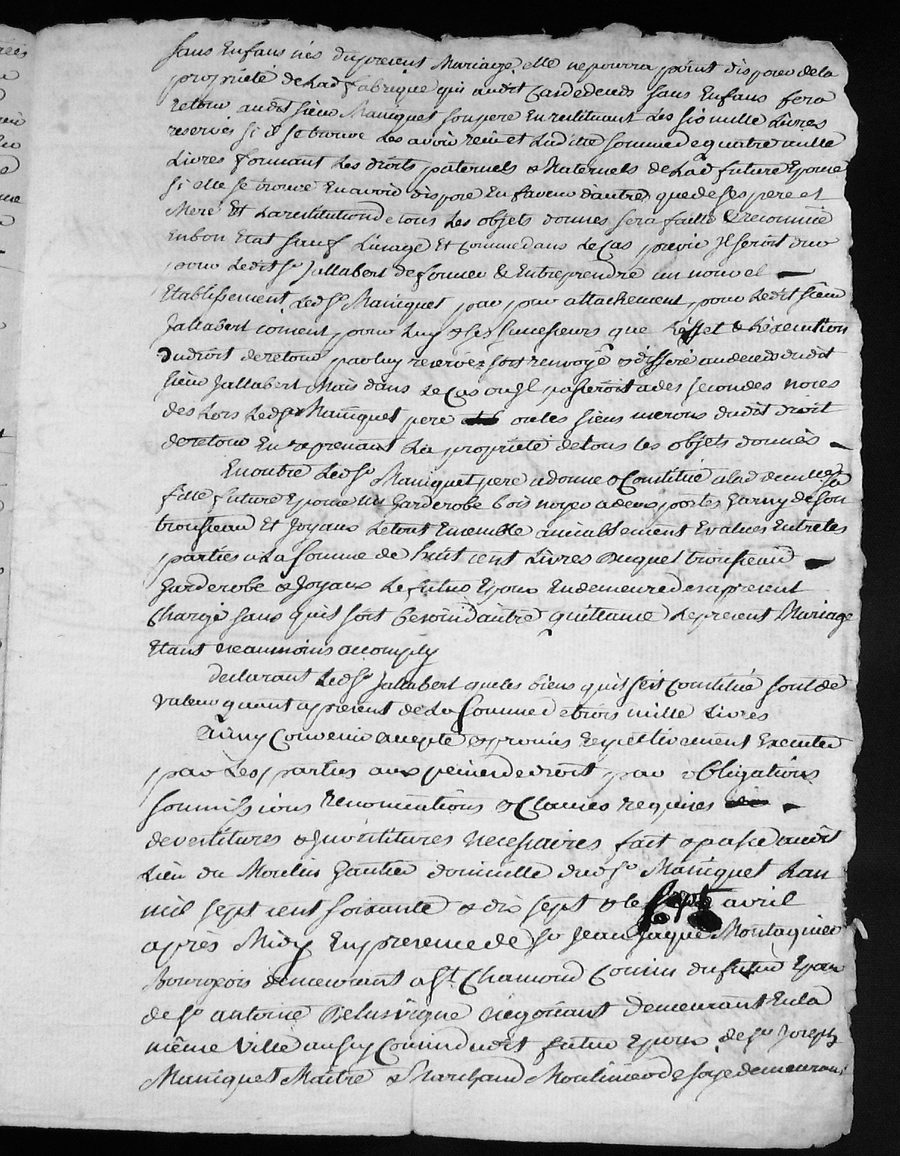 sans Enfans nés du present Mariage, elle ne pourra point disposer de la
propriété de Lad fabrique qui audit Cas de deceds sans Enfans fera
retour audit sieur Maniquet son pere En restituant Les six mille Livres
reservés si il se trouve Les avoir reçu et Laditte somme de quatre mille
Livres formant Les droits paternels & Maternels de Lad future Epouse
si elle se trouve En avoir disposé En faveur d'autres que de ses pere et
Mere Et La restitution de tous Les objets donnés sera faitte & reconnüe
En bon Etat sauf L'usage Et Comme dans Le Cas prevu Il seroit dur
pour Ledit sr Jallabert de former & Entreprendre un nouvel
Etablissement Led sr Maniquet par pur attachement pour Ledit sieur
Jallabert consent pour Luy & ses successeurs que L'effet & L'execution
du droit de retour par luy reservés soit renvoyé & differé au deceds dudit
sieur Jallabert Mais dans Le Cas ou Il passeroit a des secondes noces
des Lors Led sr Maniquet pere ou les siens useront dudit droit
de retour En reprenant La propriété de tous les objets donnés
En outre Led sr Maniquet pere a donné & Constitué a lad demlle sa
fille future Epouse un Garderobe bois noyer a deux portes Garny de son
trousseau Et Joyaux Le tout Ensemble amiablement Evalués Entre les
parties a La somme de huit cent Livres duquel trousseau
Garderobe & Joyaux Le futur Epoux En demeure des a present
Chargé sans qu'il soit besoin d'autre quittance Le present Mariage
Etant neanmoins accomply
declarant Led sr Jallabert que les biens qu'il s'est Constitué sont de
valeur quant a present de La somme de trois mille Livres
Ainsy Convenu accepté & promis respectivement Executer
par Les parties aux peines de droit par obligations
soumissions renonciations & Clauses requises
devestitures & Investitures necessaires fait & passé audit
Lieu du Moulin Gautier domicille dud sr Maniquet L'an
mil sept cent soixante & dix sept & le sept avril
après Midy En presence de sr Jean Jaque Montagnier
Bourgeois demeurant a St Chamond Cousin du futur Epoux
de sr antoine negotiant demeurant En la
même Ville aussy Cousin dudit futur Epoux de sr Joseph
Maniquet Maitre & Marchand Moulinier de soye demeurant